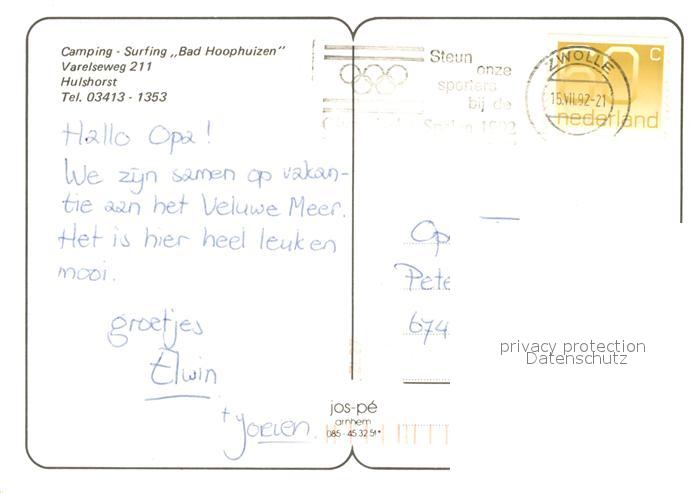 Camping - Surfing „Bad Hoophuizen"
Varelseweg 211
Hulshorst
Tel. 03413 - 1353
Hallo Opa!
We zijn samen op vakan-
tie aan het Veluwe Meer.
Het is hier heel leuk en
mooi.
groetjes
Elwin
+ Jorien.
Steun
onze
sporters
bij de
Spelen 1992
ZWOLLE
15.VII.92-21
60 c
nederland
Op
Pete
674
privacy protection
Datenschutz
jos-pé
arnhem
085 - 45 32 51*